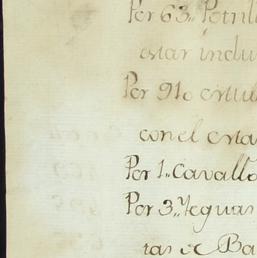 Por 63,, Potril
estar inclu
Por 910 crtul
con el esta
Por 1,, Cavallo
Por 3,, Yeguas
ras de Ba